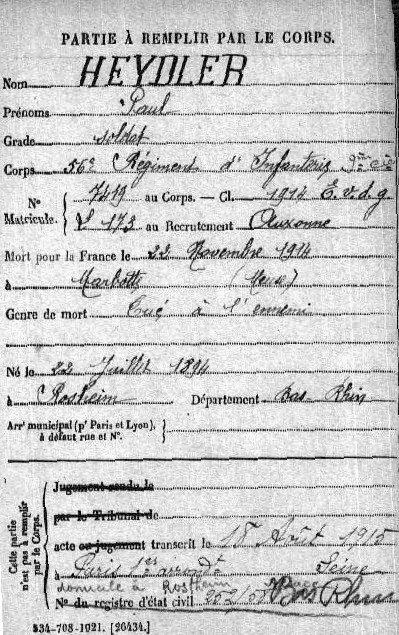 PARTIE À REMPLIR PAR LE CORPS.
Nom HEYDLER
Prénoms Paul
Grade soldat
Corps 56e Régiment d'Infanterie 9me Cie
N° Matricule. { 7419 au Corps. — Cl. 1914 E.v.d.g
173 au Recrutement Auxonne
Mort pour la France le 22 Novembre 1914
à Marbotte (Meuse)
Genre de mort Tué à l'ennemi
Né le 22 Juillet 1894
à Rosheim Département Bas Rhin
Arrt municipal (pr Paris et Lyon),
à défaut rue et N°.
Cette partie n'est pas à remplir par le Corps.
Jugement rendu le
par le Tribunal de
acte ou jugement transcrit le 18 Août 1915
à Paris 1er arrondt Seine
domicile à Rosheim
N° du registre d'état civil 252/55 Bas Rhin
534-708-1921. [26434.]